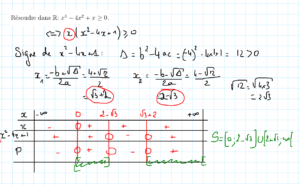 Résoudre dans ℝ: x³ − 4x² + x ≥ 0.
<=> x (x² - 4x + 1) ≥ 0
Signe de x² - 4x + 1 : Δ = b² - 4ac = (-4)² - 4x1x1 = 12 > 0
x₁ = (-b + √Δ)/2a = (4 + √12)/2 x₂ = (-b - √Δ)/2a = (4 - √12)/2 √12 = √(4x3)
= √3 + 2 2 - √3 = 2√3
x -∞ 0 2-√3 √3+2 +∞
x - 0 + + +
x² - 4x + 1 + + 0 - 0 +
P - 0 + 0 - 0 +
S = [0; 2-√3] U [